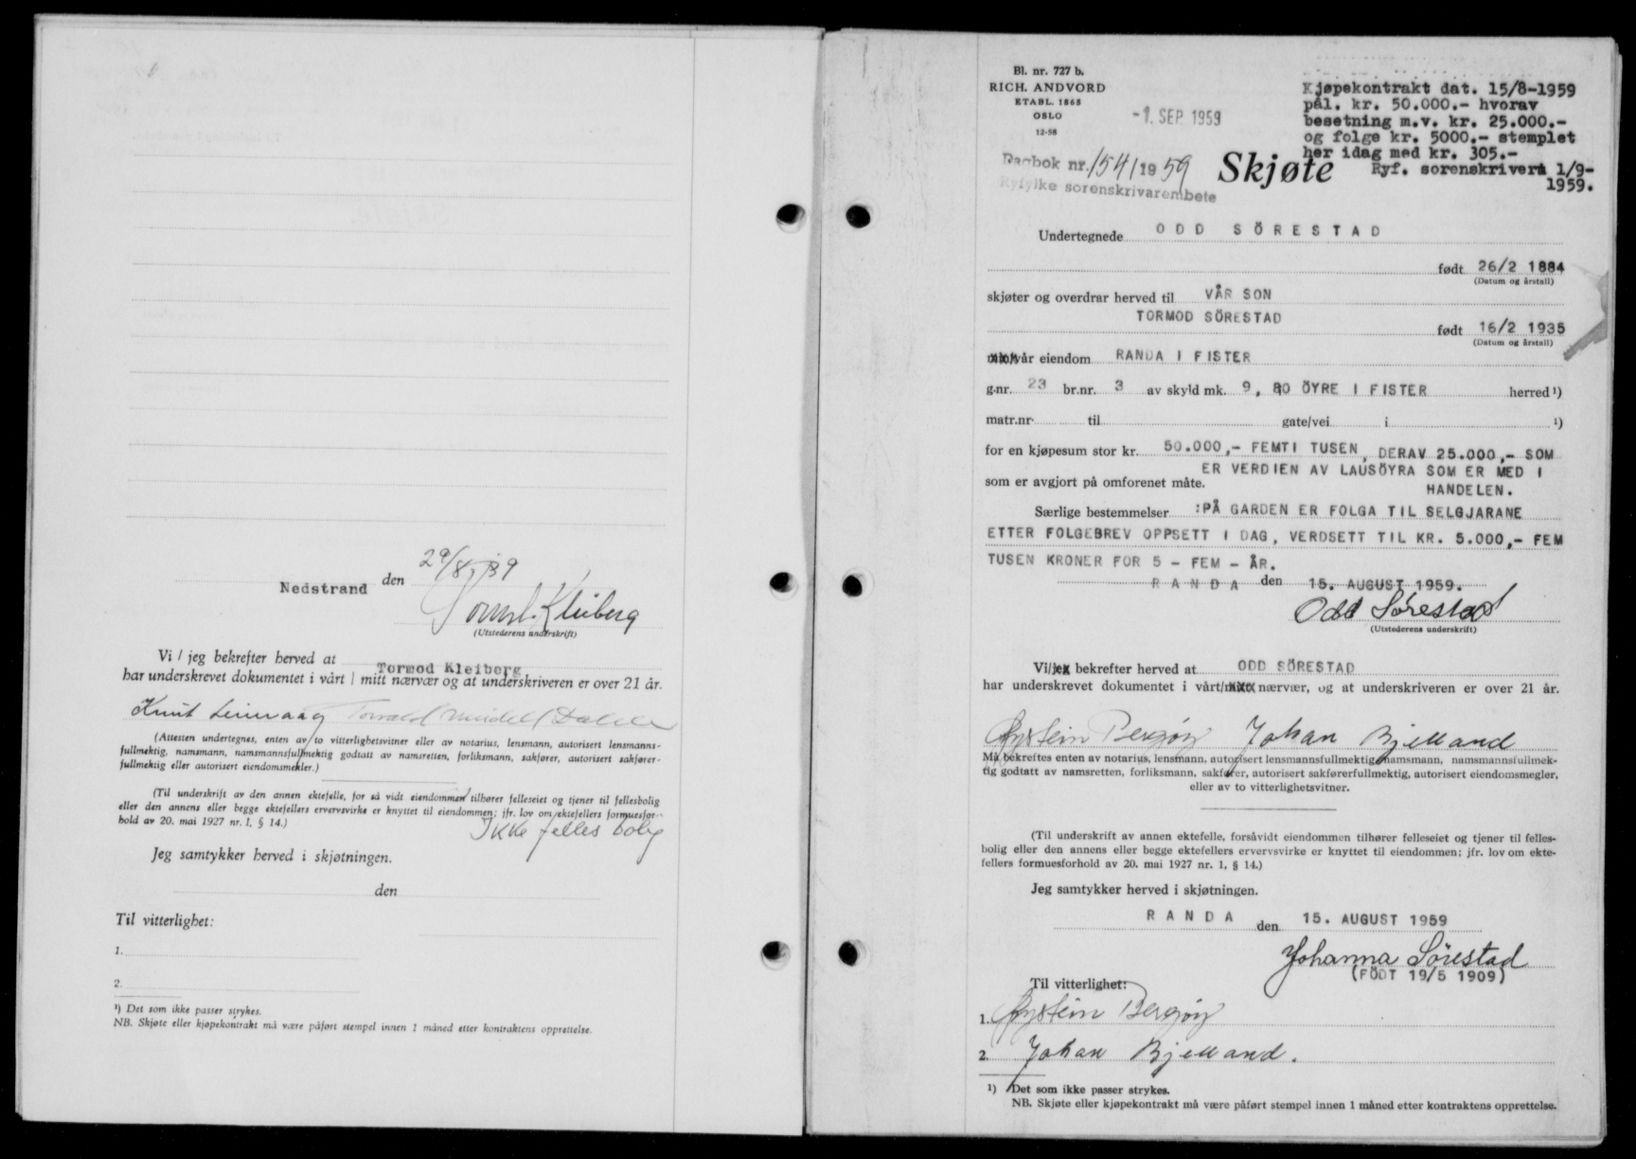 Nedstrand den 29/8, 59
Tormod Kleiberg
(Utstederens underskrift)
Vi / jeg bekrefter herved at Tormod Kleiberg
har underskrevet dokumentet i vårt / mitt nærvær og at underskriveren er over 21 år.
Knut
(Attesten undertegnes, enten av to vitterlighetsvitner eller av notarius, lensmann, autorisert lensmanns-
fullmektig, namsmann, namsmannsfullmektig godtatt av namsretten, forliksmann, sakfører, autorisert sakfører-
fullmektig eller autorisert eiendomsmekler.)
(Til underskrift av den annen ektefelle, for så vidt eiendommen tilhører felleseiet og tjener til fellesbolig
eller den annens eller begge ektefellers ervervsvirke er knyttet til eiendommen; jfr. lov om ektefellers formuesfor-
hold av 20. mai 1927 nr. 1, § 14.)
Ikke felles bolig
Jeg samtykker herved i skjøtningen.
den
Til vitterlighet:
1.
2.
¹) Det som ikke passer strykes.
NB. Skjøte eller kjøpekontrakt må være påført stempel innen 1 måned etter kontraktens opprettelse.
Bl. nr. 727 b.
RICH. ANDVORD
ETABL. 1865
OSLO
12-58
-1. SEP 1959
Dagbok nr. 1541 1959
Ryfylke sorenskrivarembete
Kjøpekontrakt dat. 15/8-1959
pål. kr. 50.000.- hvorav
besetning m.v. kr. 25.000.-
og folge kr. 5000.- stemplet
her idag med kr. 305.-
Ryf. sorenskriveri 1/9-
1959.
Skjøte
Undertegnede ODD SÖRESTAD
født 26/2 1884
(Datum og årstall)
skjøter og overdrar herved til VÅR SON
TORMOD SÖRESTAD
født 16/2 1935
(Datum og årstall)
vår eiendom RANDA I FISTER
g.nr. 23 br.nr. 3 av skyld mk. 9,80 ÖYRE I FISTER herred ¹)
matr.nr. til gate/vei i ¹)
for en kjøpesum stor kr. 50.000,- FEMTI TUSEN, DERAV 25.000,- SOM
ER VERDIEN AV LAUSÖYRA SOM ER MED I
som er avgjort på omforenet måte. HANDELEN.
Særlige bestemmelser :PÅ GARDEN ER FOLGA TIL SELGJARANE
ETTER FOLGEBREV OPPSETT I DAG, VERDSETT TIL KR. 5.000,- FEM
TUSEN KRONER FOR 5 - FEM - ÅR.
RANDA den 15. AUGUST 1959.
Odd Sørestad
(Utstederens underskrift)
Vi/jeg bekrefter herved at ODD SÖRESTAD
har underskrevet dokumentet i vårt/mitt nærvær, og at underskriveren er over 21 år.
Øystein Bergøy Johan Bjelland
Må bekreftes enten av notarius, lensmann, autorisert lensmannsfullmektig, namsmann, namsmannsfullmek-
tig godtatt av namsretten, forliksmann, sakfører, autorisert sakførerfullmektig, autorisert eiendomsmegler,
eller av to vitterlighetsvitner.
(Til underskrift av annen ektefelle, forsåvidt eiendommen tilhører felleseiet og tjener til felles-
bolig eller den annens eller begge ektefellers ervervsvirke er knyttet til eiendommen; jfr. lov om ekte-
fellers formuesforhold av 20. mai 1927 nr. 1, § 14.)
Jeg samtykker herved i skjøtningen.
RANDA den 15. AUGUST 1959
Johanna Sørestad
(FÖDT 19/5 1909)
Til vitterlighet:
1. Øystein Bergøy
2. Johan Bjelland.
¹) Det som ikke passer strykes.
NB. Skjøte eller kjøpekontrakt må være påført stempel innen 1 måned etter kontraktens opprettelse.